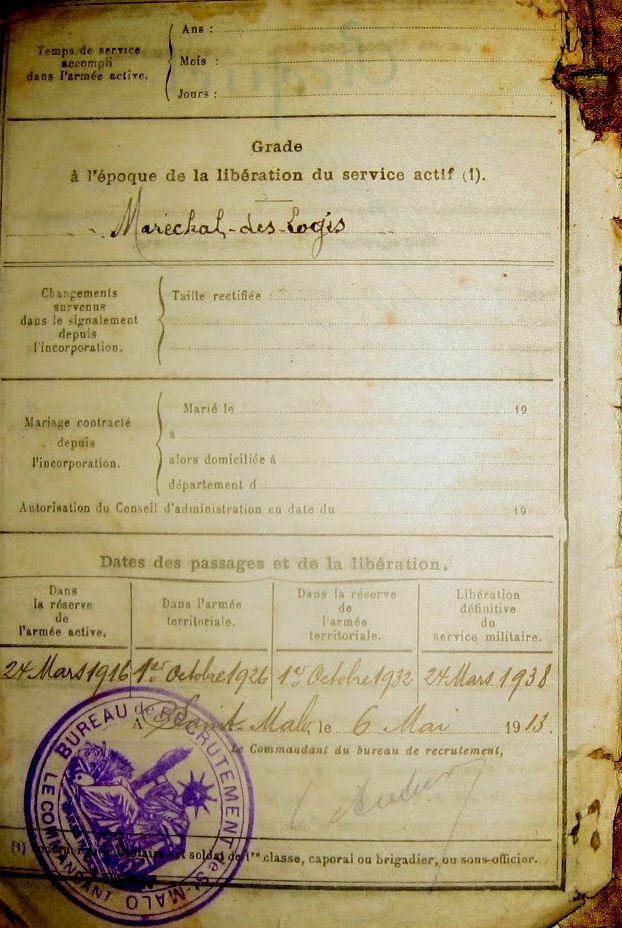 Temps de service
accompli
dans l'armée active.
Ans :
Mois :
Jours :
Grade
à l'époque de la libération du service actif (1).
Maréchal-des-Logis
Changements
survenus
dans le signalement
depuis
l'incorporation.
Taille rectifiée :
Mariage contracté
depuis
l'incorporation.
Marié le 19
à
alors domiciliée à
département d
Autorisation du Conseil d'administration en date du 19
Dates des passages et de la libération.
Dans
la réserve
de
l'armée active.
Dans l'armée
territoriale.
Dans la réserve
de
l'armée
territoriale.
Libération
définitive
du
service militaire.
24 Mars 1916 1er Octobre 1926 1er Octobre 1932 24 Mars 1938
A Saint-Malo, le 6 Mai 1913.
Le Commandant du bureau de recrutement,
BUREAU de RECRUTEMENT de St-MALO
LE COMMANDANT
(1) soldat de 1re classe, caporal ou brigadier, ou sous-officier.